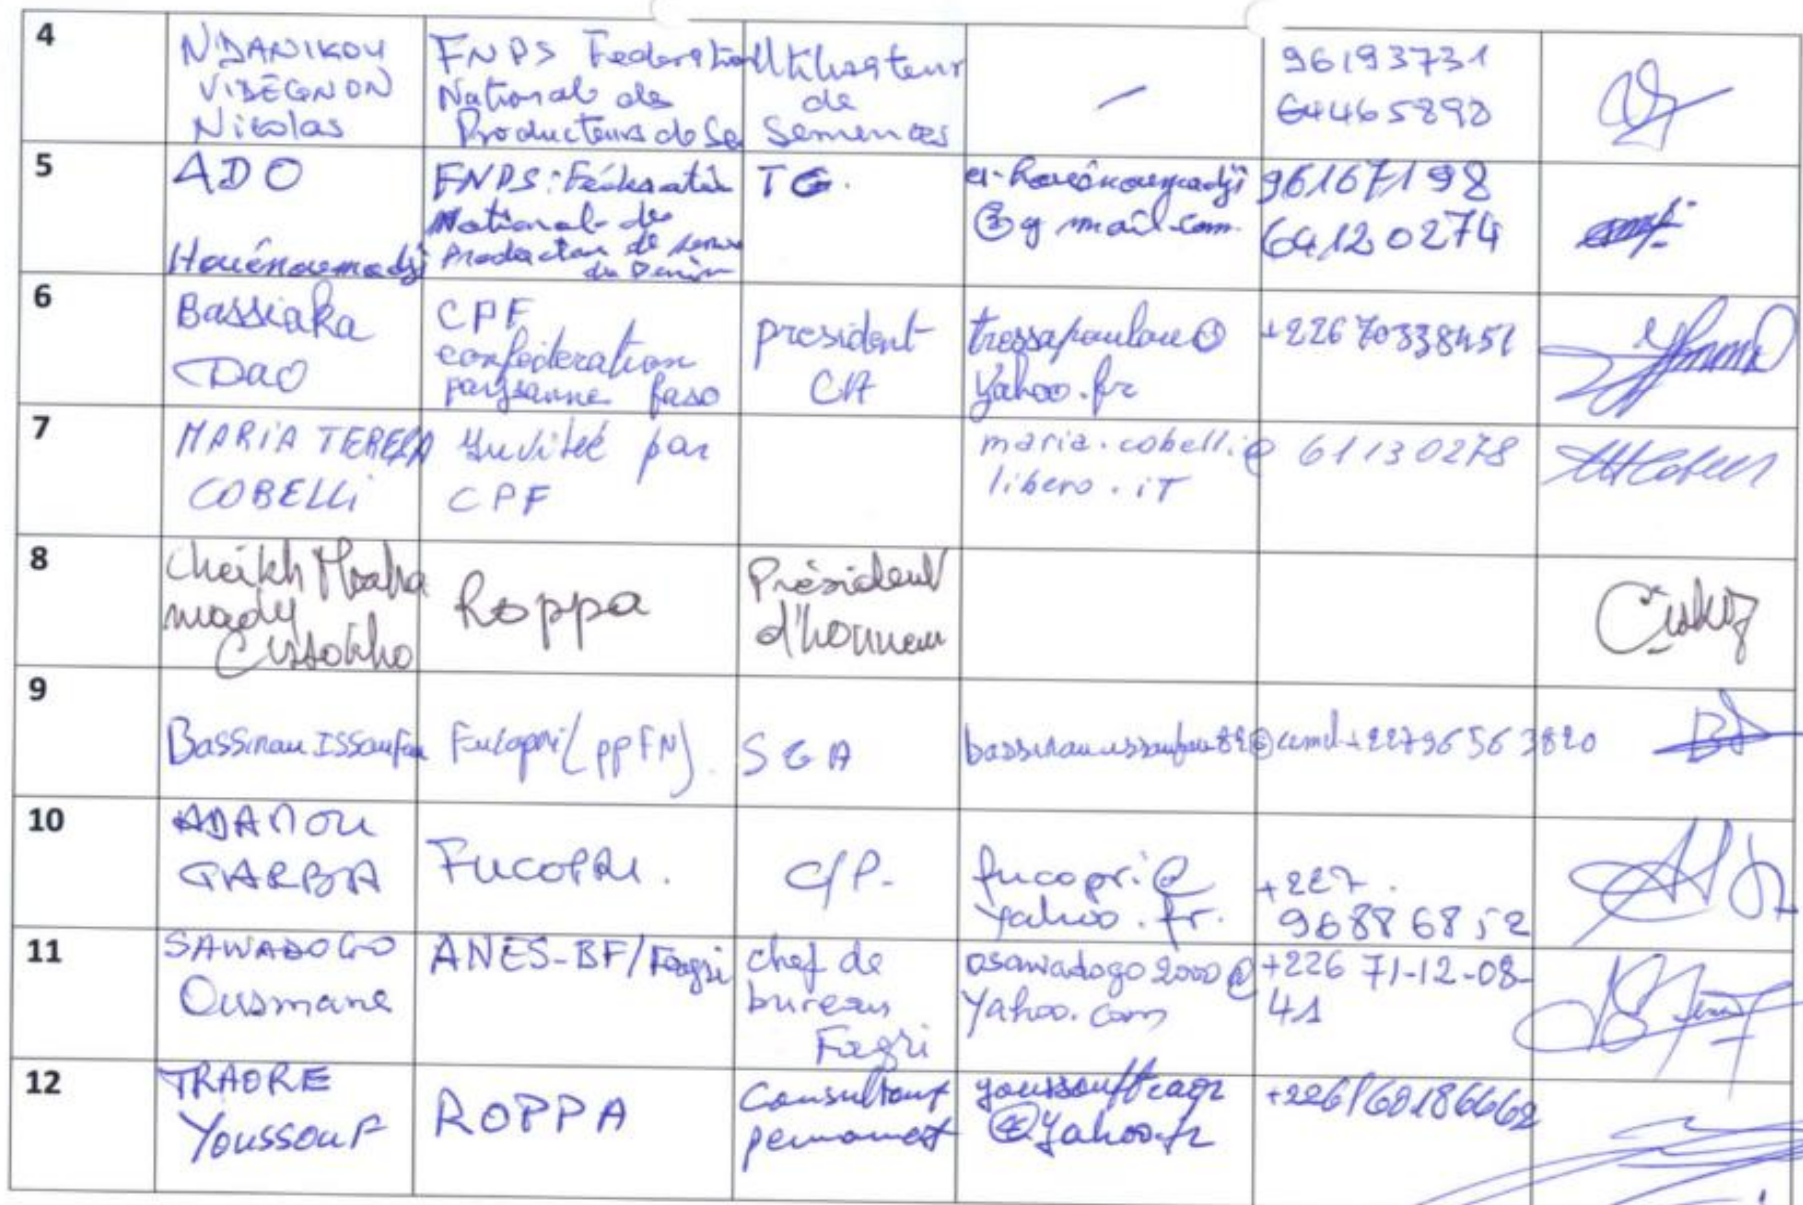 4
NDANIKOU
VIDÉGNON
Nicolas
FNPS Federation
National des
Producteurs de Se
Utilisateur
de
Semences
96193731
64465890
5
ADO
Houénoumadji
FNPS: Fédération
National de
Producteur de seme
du Benin
TG.
@gmail.com
96167198
64120274
6
Bassiaka
Dao
CPF
confédération
paysanne faso
président
CA
tressapoulou@
yahoo.fr
+226 70338451
7
MARIA TERESA
COBELLi
Invitée par
CPF
maria.cobelli@
libero.iT
61130278
8
Cheikh Mouha
mady
Cissokho
Roppa
Président
d'honneur
9
Bassirou ISSoufou
Fucopri (PPFN)
SGA
10
ADAMOU
GARBA
FUCOPRI.
C/P.
fucopri@
yahoo.fr.
+227
96886852
11
SAWADOGO
Ousmane
ANES-BF/Fagri
chef de
bureau
Fagri
osawadogo2000@
yahoo.com
+226 71-12-08-
41
12
TRAORE
Youssouf
ROPPA
Consultant
permanent
@yahoo.fr